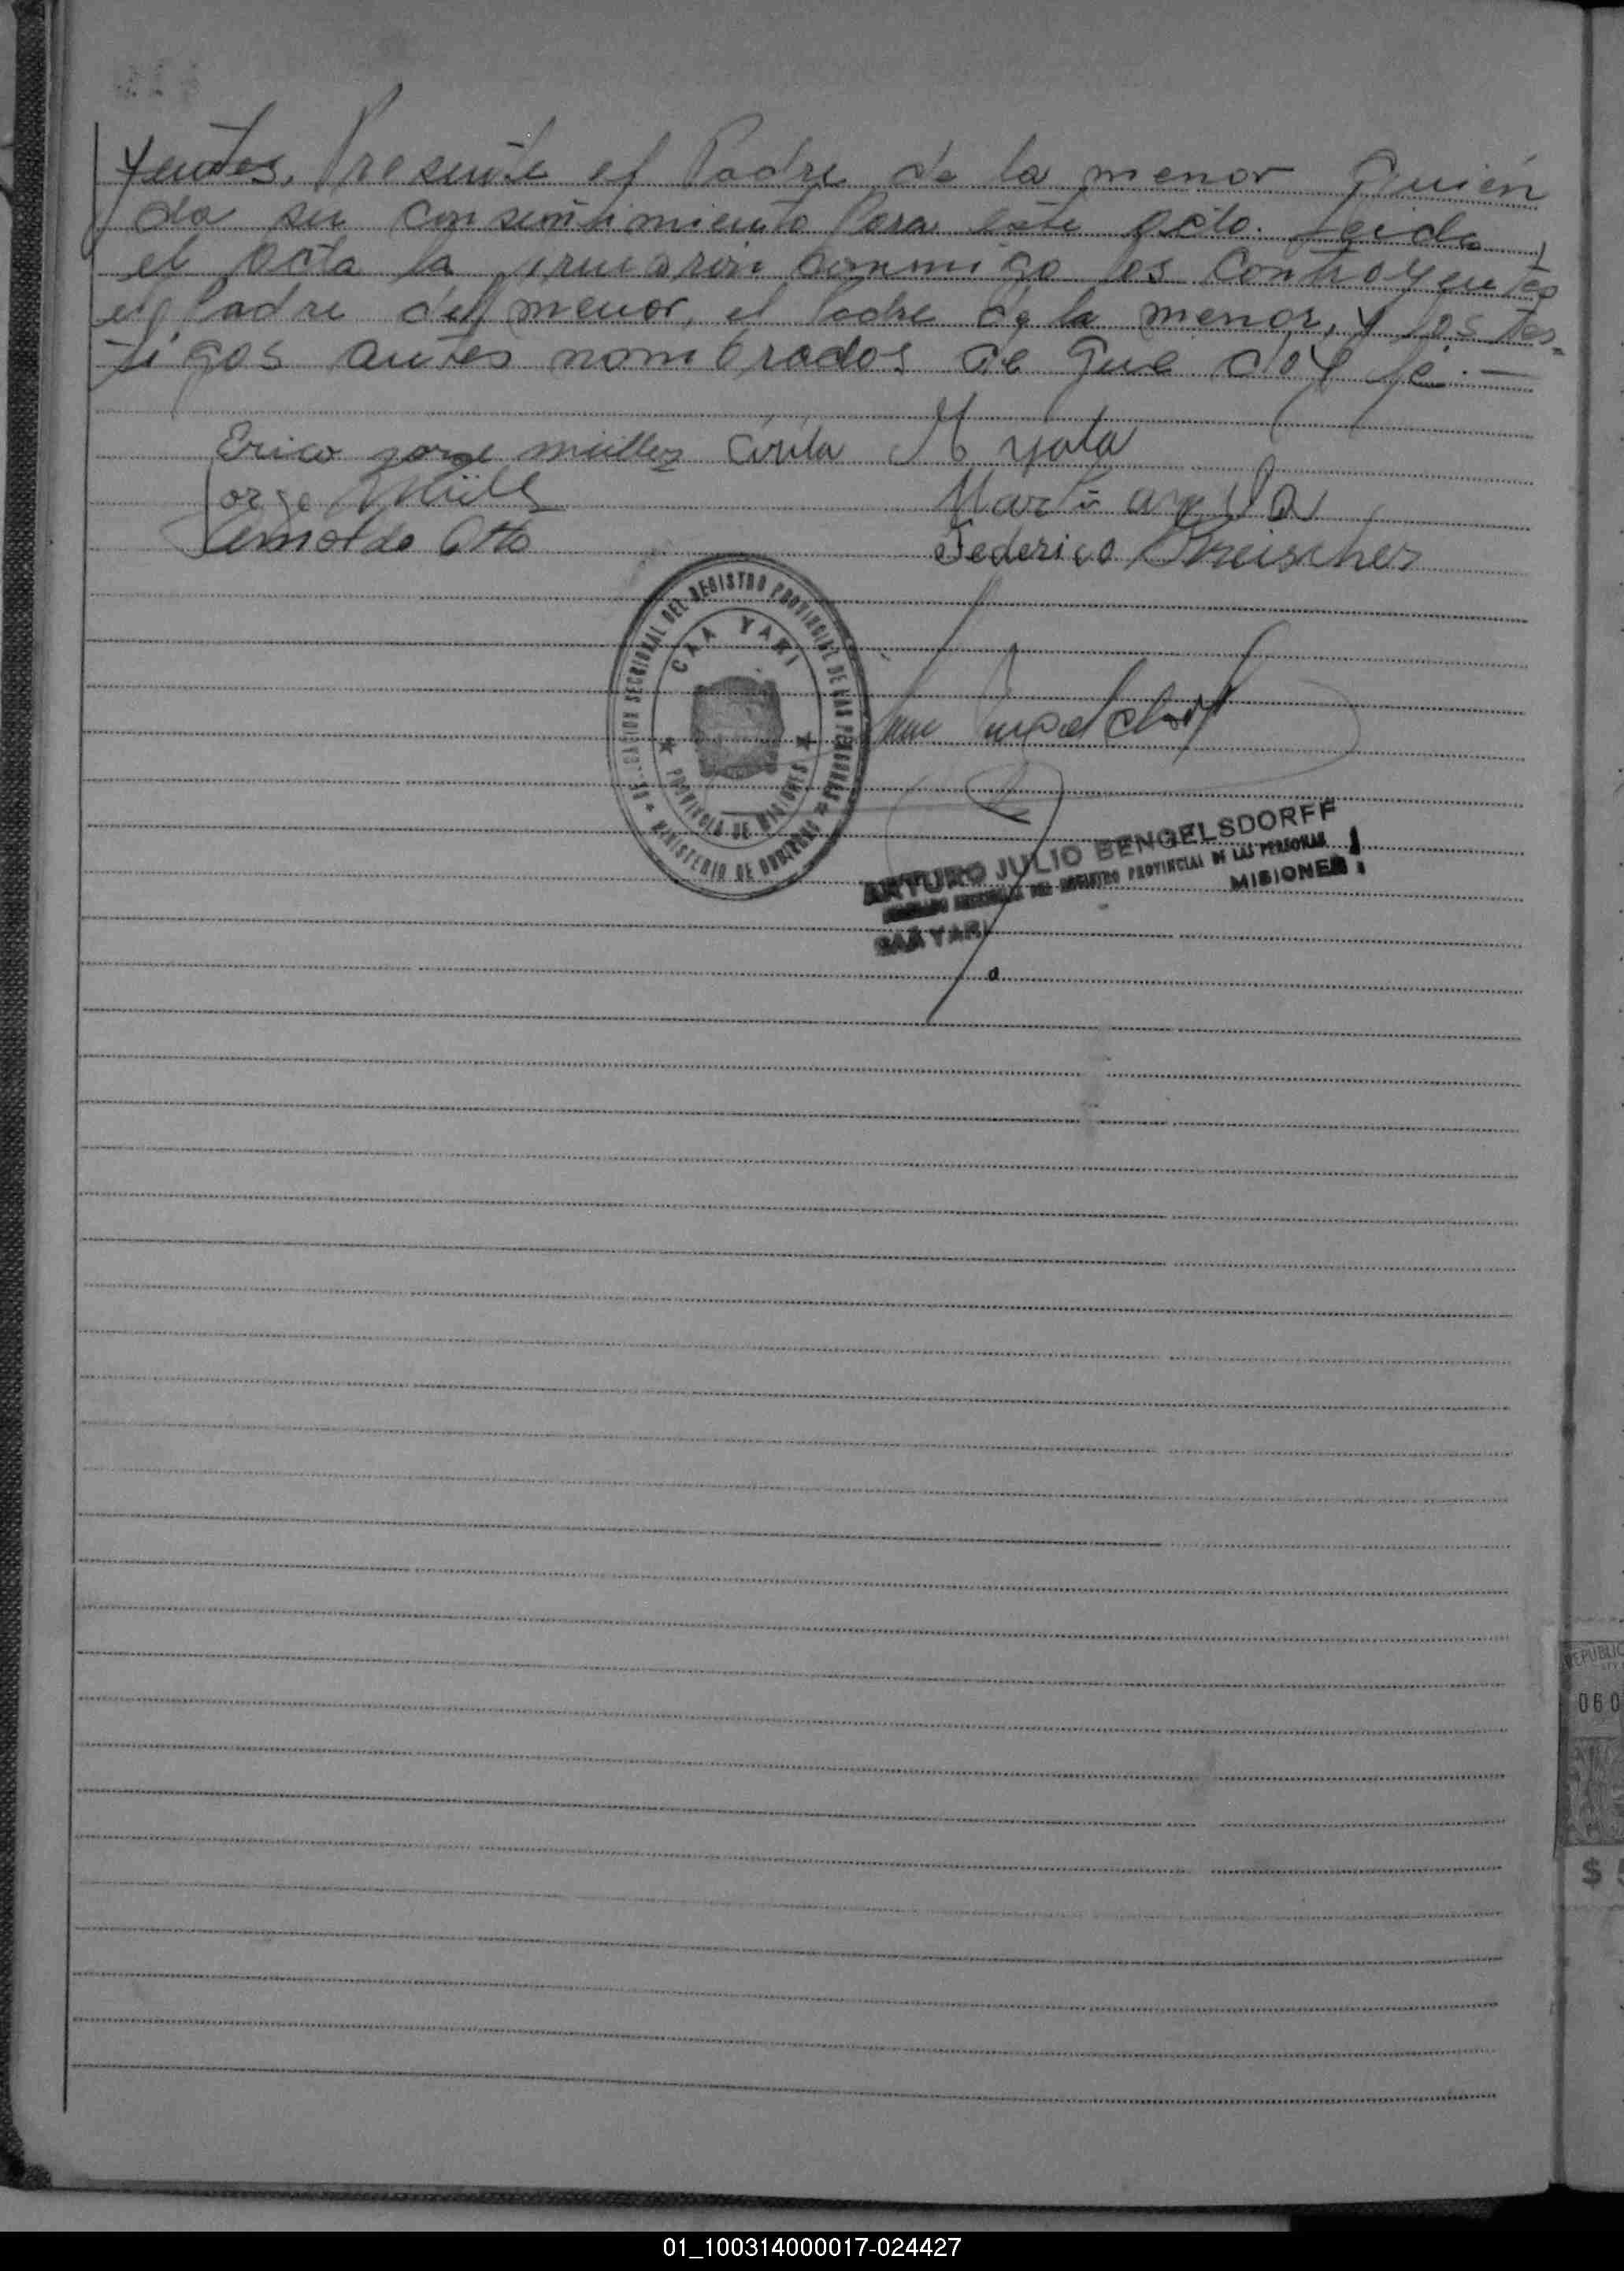 yentes. Presente el Padre de la menor quién
da su consentimiento para este acto. Leida
el acta la firmaron conmigo los contrayentes
el Padre del menor, el Padre de la menor, y los tes-
tigos antes nombrados de que doy fé.-
Erico Jorge Müller Cirila M Ayala
Jorge Müller Martin Ayala
Arnoldo Otto Federico
DELEGACION SECCIONAL DEL REGISTRO PROVINCIAL DE LAS PERSONAS
CAA YARI
PROVINCIA DE MISIONES
MINISTERIO DE GOBIERNO
ARTURO JULIO BENGELSDORFF
DELEGADO SECCIONAL DEL REGISTRO PROVINCIAL DE LAS PERSONAS
CAA YARI MISIONES
REPUBLIC
060
$ 5
01_100314000017-024427